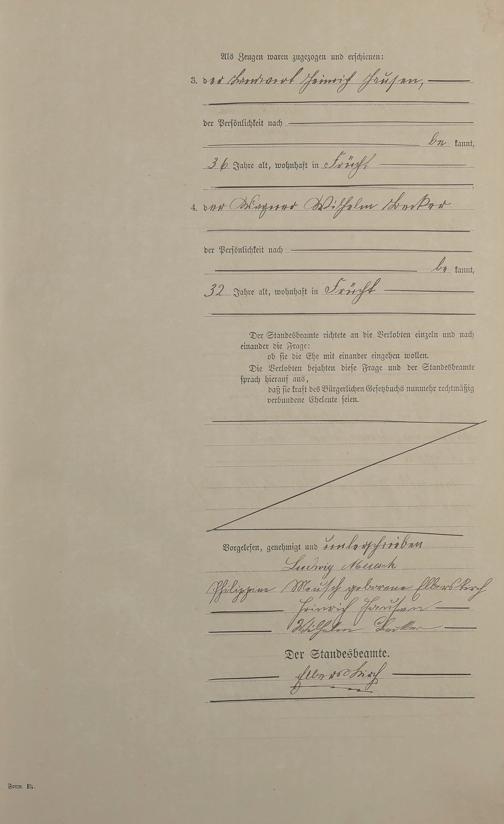 Als Zeugen waren zugezogen und erschienen:
3. der Landwirt Heinrich Hausen,
der Persönlichkeit nach
be kannt,
36 Jahre alt, wohnhaft in Frücht
4. der Wagner Wilhelm Becker
der Persönlichkeit nach
be kannt,
32 Jahre alt, wohnhaft in Frücht
Der Standesbeamte richtete an die Verlobten einzeln und nach
einander die Frage:
ob sie die Ehe mit einander eingehen wollen.
Die Verlobten bejahten diese Frage und der Standesbeamte
sprach hierauf aus,
daß sie kraft des Bürgerlichen Gesetzbuchs nunmehr rechtmäßig
verbundene Eheleute seien.
Vorgelesen, genehmigt und unterschrieben
Ludwig Meusch
Philippine Meusch geborene Elberskirch
Heinrich Hausen
Wilhelm Becker
Der Standesbeamte.
Elberskirch
Form.